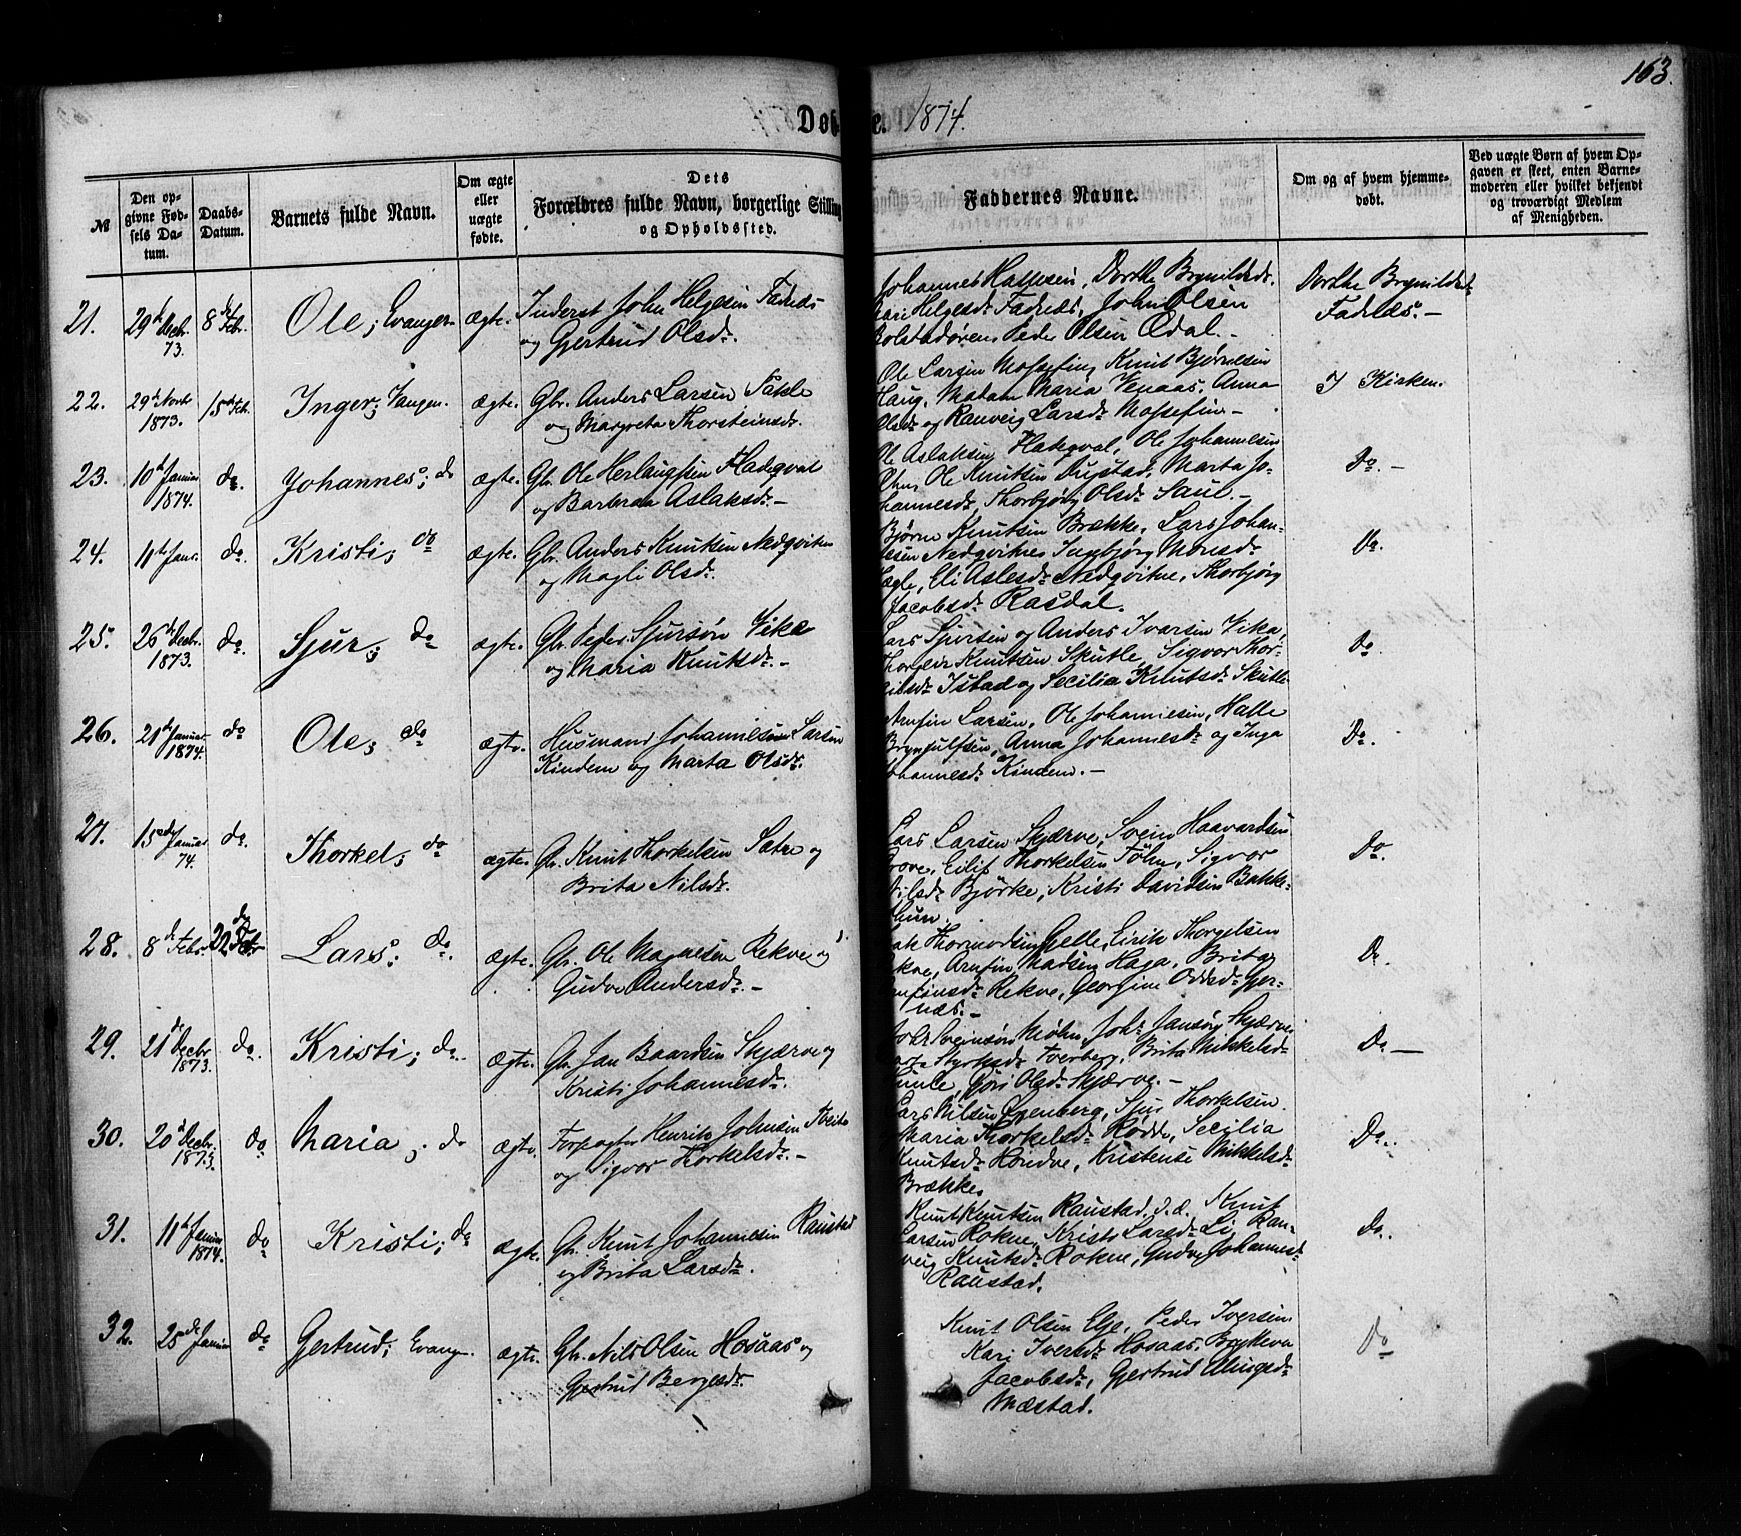 163.
Døbte. 1874.
№
Den opgivne Fødsels Datum.
Daabs-Datum.
Barnets fulde Navn.
Om ægte eller uægte fødte.
Dets Forældres fulde Navn, borgerlige Stilling og Opholdssted.
Faddernes Navne.
Om og af hvem hjemmedøbt.
Ved uægte Børn af hvem Opgaven er skeet, enten Barnemoderen eller hvilket bekjendt og troværdigt Medlem af Menigheden.
21. 29de Decbr. 73. 8de Febr. Ole; Evanger ægte. Inderst John Helgesen Fadnæs
og Gjertrud Olsdr.
Johannes Hallesen, Dorthe Brynildsdr.
Kari Helgesdr Fadnæs, John Olsen
Bolstadøren, Peder Olsen Ødal.
Dorthe Brynildsdr
Fadnæs.
22. 29de Novbr 1873. 15de Feb. Inger; Vangen. ægte. Gbr. Anders Larsen Sætle
og Margreta Thorsteinsdr.
Ole Larsen Mossefin, Knut Bjørnesen
Haug, Madam Maria Venaas, Anna
Olsdr og Ranveig Larsdr Mossefin
I Kirken.
23. 10de Januar 1874. do. Johannes; do ægte. Gbr. Ole Herlaugsen Fladeqval
og Barbra Aslaksdr.
Ole Aslaksen Fladeqval, Ole Johannesen
Ole Knutsen Dugstad, Marta Johannesdr,
Thorbjørg Olsdr Saue.
Do.
24. 11te Janr. do. Kristi; do ægte. Gbr. Anders Knutsen Nedqvitne
og Magli Olsdr.
Bjørn Knutsen Brække, Lars Johannesen
Nedqvitne, Ingebjørg Monsdr
Eli Aslesdr Nedqvitne, Thorbjørg
Jacobsdr Rasdal.
Do.
25. 26de Decbr. 1873. do. Sjur; do ægte. Gbr. Peder Sjursøn Vike
og Maria Knutsdr.
Lars Sjursen og Anders Ivarsen Vike,
Thorgeir Knutsen Skutle, Sigvor Thorgilsdr
Istad og Secilia Knutsdr Skutle
Do.
26. 21de Januar 1874. do Ole; do ægte. Husmand Johannes Larsen
Kindem og Marta Olsdr.
Arnfin Larsen, Ole Johannesen, Halle
Brynjulfsen, Anna Johannesdr og Inga
Johannesdr Kindem.
Do.
27. 15de Januar 74. do. Thorkel; do ægte. Gbr. Knut Thorkelsen Sætre og
Brita Nilsdr.
Lars Larsen Skjærve, Svein Haavardsen
Grove, Eilif Thorkelsen Tøhn, Sigvor
Nilsdr Bjørke, Kristi Davidsen Bakkethun.
Do.
28. 8de Febr. 22de Febr Lars; do. ægte. Gbr. Ole Magnesen Rekve og
Gudve Andersdr.
Thormodsen Gjelle, Eirik Thorgelsen
Rekve, Arnfin Madsen Haga, Brita
Arnfinsdr Rekve, Georgine Oddsdr Gjernæs.
Do.
29. 21de Decbr 1873. do. Kristi; do. ægte. Gbr. Jan Baardsen Skjærve og
Kristi Johannesdr.
Sveinsøn Møhn, Johs Jansøn Skjærve
Styrksdr Tverberg, Brita Mikkelsdr
Guri Olsdr Skjærve.
Do
30. 20de Decbr. 1873. do Maria; do ægte. Forpagter Henrik Johnsen Tveite
og Sigvor Thorkelsdr.
Lars Nilsen Øvenberg, Sjur Thorkelsen
Maria Thorkelsdr Rødde, Secilia
Knutsdr Hondve, Kristense Mikkelsdr
Brække.
Do.
31. 11te Januar 1874. do Kristi; do ægte. Gbr. Knut Johannesen Raustad
og Brita Larsdr.
Knut Knutsen Raustad, d.d., Knut
Larsen Rokne, Kristi Larsdr Li, Ranveig
Knutsdr Rokne, Gudve Johannesdr
Raustad.
Do.
32. 25de Januar do Gertrud; Evang. ægte. Gbr. Nils Olsen Hosaas og
Gjertrud Bergesdr.
Knut Olsen Elje, Peder Iversen
Kari Iversdr Hosaas, Brykteva
Jacobsdr, Gjertrud
Mæstad.
Do